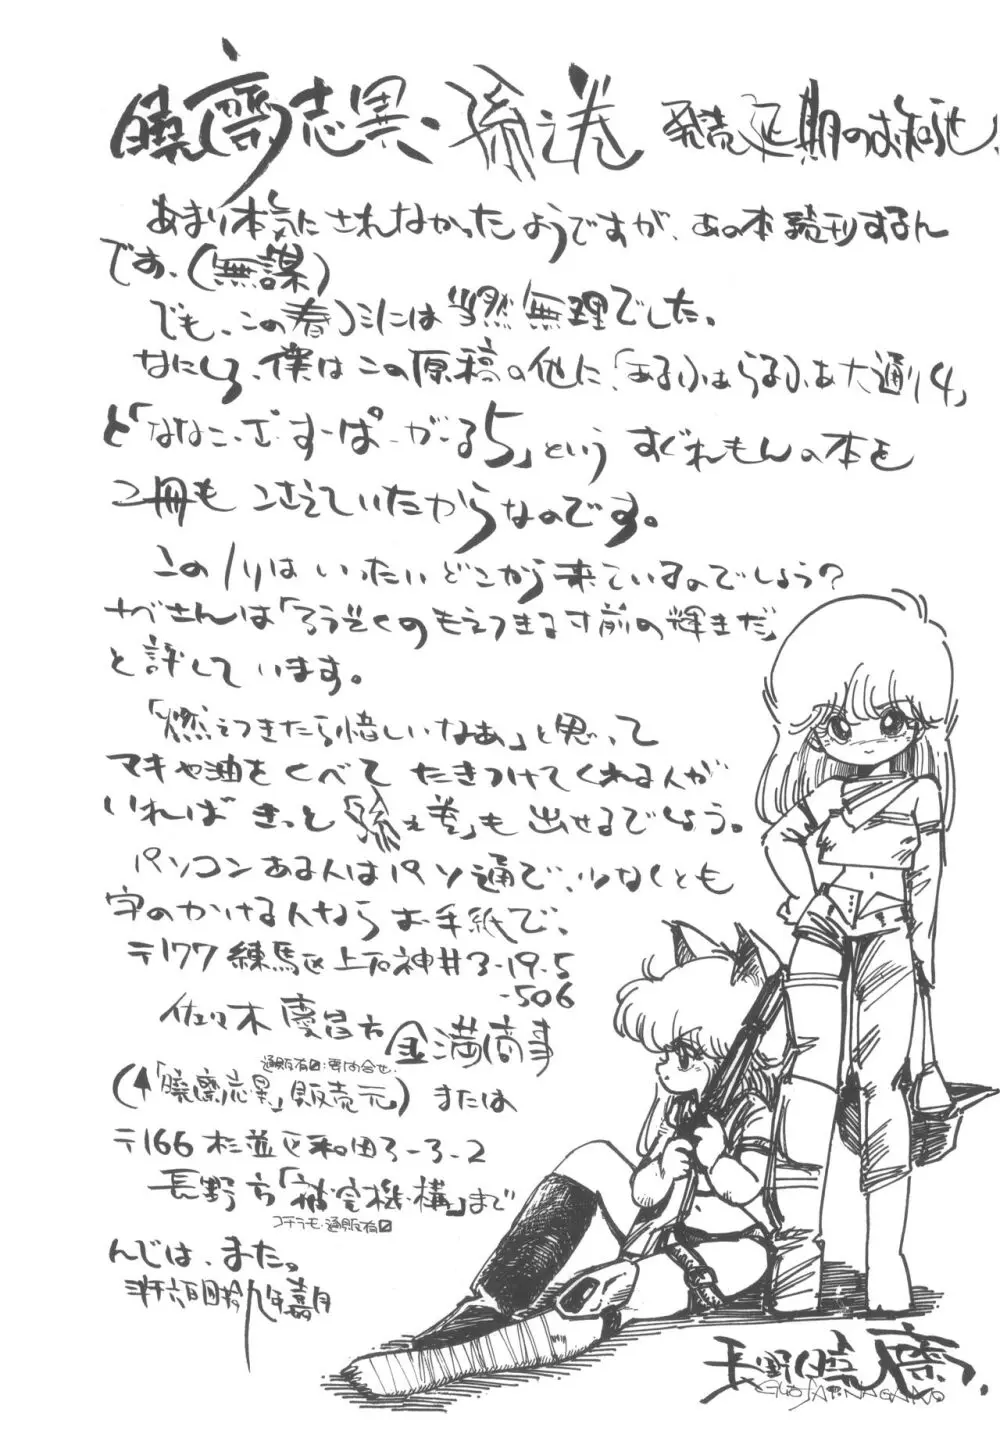 曉齋志異・孫之巻 発売延期のお知らせ!
あまり本気にされなかったようですが、あの本続刊するん
です、(無謀)
でも、この春コミには当然無理でした。
なにしろ、僕はこの原稿の他に、「あるふぁらるふぁ大通り4」
と「ななこ・ざ・すーぱーがーる5」という すぐれもんの本を
2冊も こさえていたからなのです。
このノリは いったい どこから来ているのでしょう?
ナベさんは「ろうそくの もえつきる寸前の輝きだ」
と評しています。
「燃えつきたら惜しいなあ」と思って
マキや油をくべて たきつけてくれる人が
いればきっと「孫之巻」も出せるでしょう。
パソコンある人はパソ通で、少なくとも
字のかける人ならお手紙で、
〒177 練馬区上石神井3-19-5
-506
佐々木 方 金満商事
通販有□:要問合せ.
(↑「曉齋志異」販売元) または
〒166 杉並区和田3-3-2
長野方「機構」まで
コチラも通販有□
んでは、また。
弐千六百四拾九年嘉月
長野曉齋.
GYOSAI NAGANO